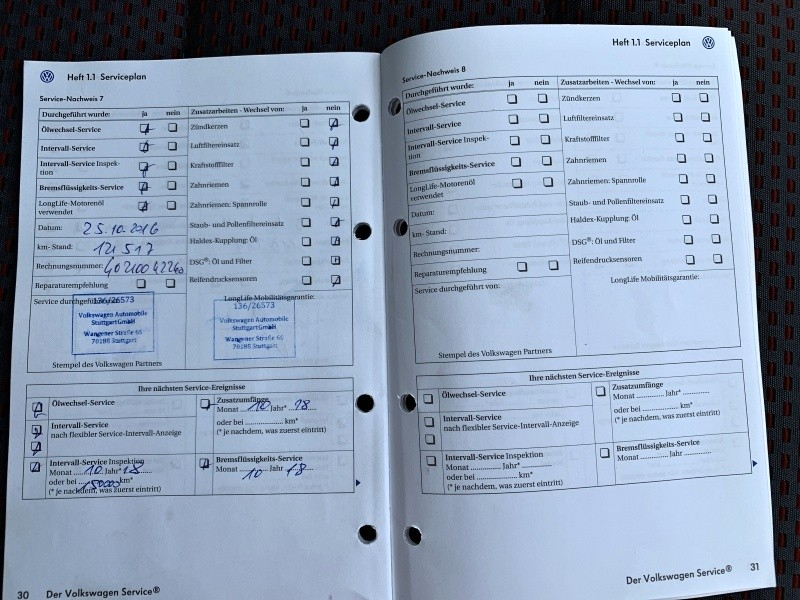 Heft 1.1 Serviceplan
Service-Nachweis 7
Durchgeführt wurde: ja nein
Ölwechsel-Service
Intervall-Service
Intervall-Service Inspek-
tion
Bremsflüssigkeits-Service
LongLife-Motorenöl
verwendet
Datum: 25.10.2016
km- Stand: 121 517
Rechnungsnummer:
Reparaturempfehlung
Service durchgeführt
136/26573
Volkswagen Automobile
Stuttgart GmbH
Wangener Straße 66
70188 Stuttgart
Stempel des Volkswagen Partners
Zusatzarbeiten - Wechsel von: ja nein
Zündkerzen
Luftfiltereinsatz
Kraftstofffilter
Zahnriemen
Zahnriemen: Spannrolle
Staub- und Pollenfiltereinsatz
Haldex-Kupplung: Öl
DSG®: Öl und Filter
Reifendrucksensoren
LongLife Mobilitätsgarantie:
136/26573
Volkswagen Automobile
Stuttgart GmbH
Wangener Straße 66
70188 Stuttgart
Ihre nächsten Service-Ereignisse
Ölwechsel-Service
Intervall-Service
nach flexibler Service-Intervall-Anzeige
Intervall-Service Inspektion
Monat 10 Jahr* 18
oder bei 150000 km*
(* je nachdem, was zuerst eintritt)
Zusatzumfänge
Monat 10 Jahr* 18
oder bei .................. km*
(* je nachdem, was zuerst eintritt)
Bremsflüssigkeits-Service
Monat 10 Jahr 18
30 Der Volkswagen Service®
Heft 1.1 Serviceplan
Service-Nachweis 8
Durchgeführt wurde: ja nein
Ölwechsel-Service
Intervall-Service
Intervall-Service Inspek-
tion
Bremsflüssigkeits-Service
LongLife-Motorenöl
verwendet
Datum:
km- Stand:
Rechnungsnummer:
Reparaturempfehlung
Service durchgeführt von:
Stempel des Volkswagen Partners
Zusatzarbeiten - Wechsel von: ja nein
Zündkerzen
Luftfiltereinsatz
Kraftstofffilter
Zahnriemen
Zahnriemen: Spannrolle
Staub- und Pollenfiltereinsatz
Haldex-Kupplung: Öl
DSG®: Öl und Filter
Reifendrucksensoren
LongLife Mobilitätsgarantie:
Ihre nächsten Service-Ereignisse
Ölwechsel-Service
Intervall-Service
nach flexibler Service-Intervall-Anzeige
Intervall-Service Inspektion
Monat ............ Jahr* ............
oder bei .................. km*
(* je nachdem, was zuerst eintritt)
Zusatzumfänge
Monat ............ Jahr* ............
oder bei .................. km*
(* je nachdem, was zuerst eintritt)
Bremsflüssigkeits-Service
Monat ............ Jahr ............
Der Volkswagen Service® 31